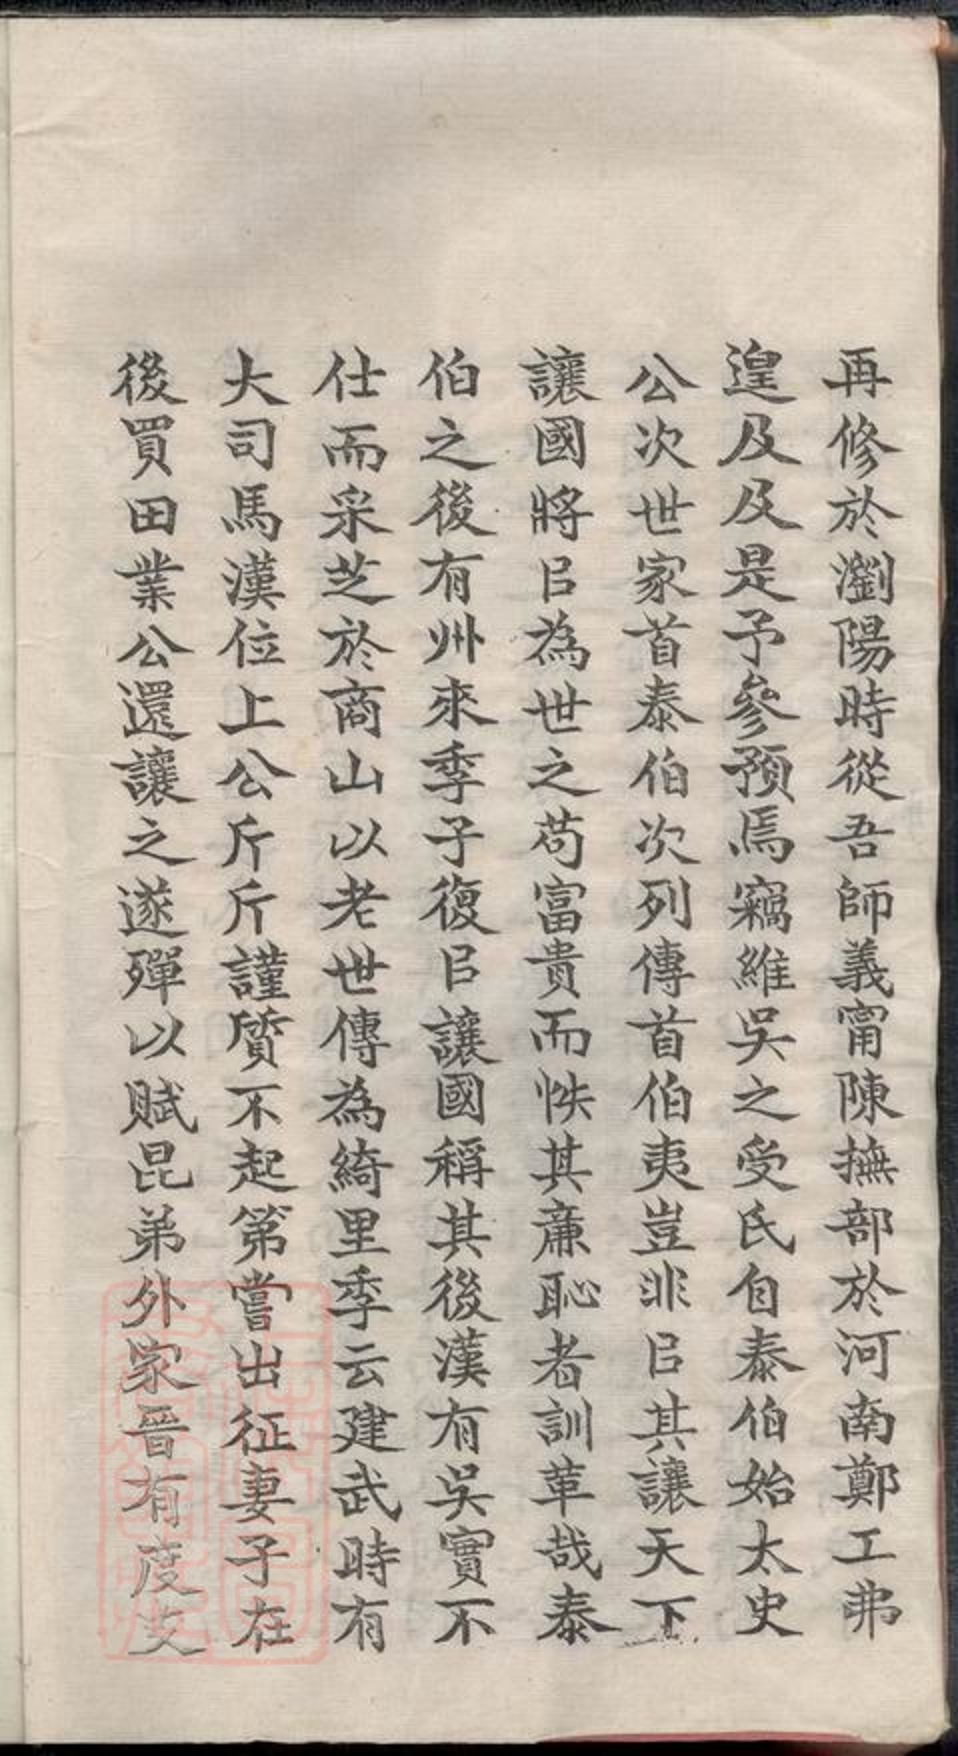 再修於瀏陽時從吾師義甯陳撫部於河南鄭工弗
遑及及是予參預焉竊維吳之受氏自泰伯始太史
公次世家首泰伯次列傳首伯夷豈非㠯其讓天下
讓國將㠯為世之苟富貴而怢其亷恥者訓革哉泰
伯之後有州來季子復㠯讓國稱其後漢有吳實不
仕而采芝於商山以老世傳為綺里季云建武時有
大司馬漢位上公斤斤謹質不起第嘗出征妻子在
後買田業公還讓之遂殫以賦昆弟外家晉有度支